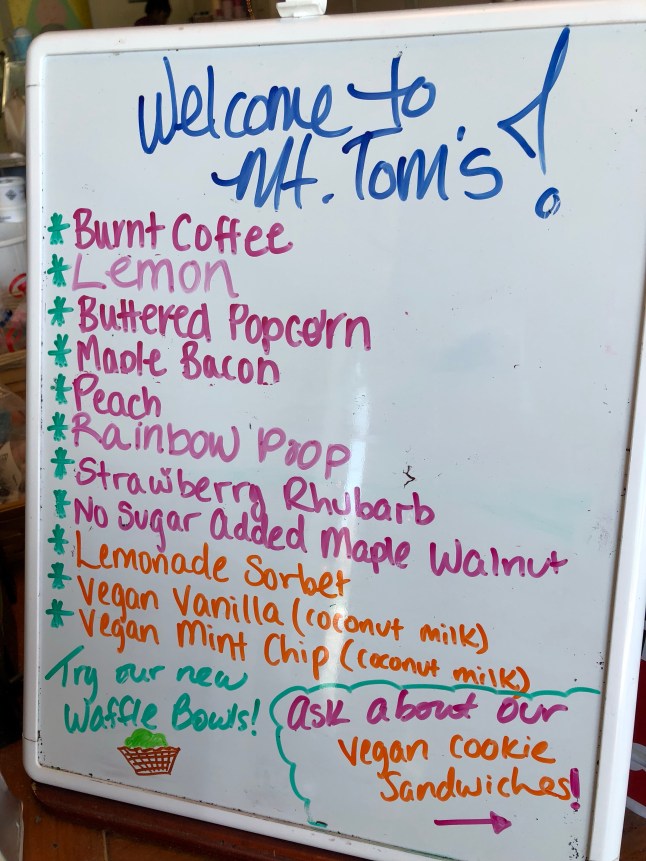 Welcome to
Mt. Tom's!
* Burnt Coffee
* Lemon
* Buttered Popcorn
* Maple Bacon
* Peach
* Rainbow Poop
* Strawberry Rhubarb
* No Sugar Added Maple Walnut
* Lemonade Sorbet
* Vegan Vanilla (coconut milk)
* Vegan Mint Chip (coconut milk)
Try our new
Waffle Bowls!
Ask about our
Vegan Cookie
Sandwiches!